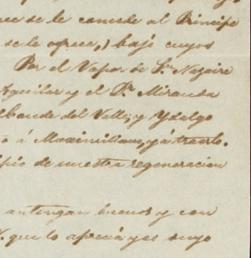 se le concede al Principe
se le ofrece,) bajo cuyos
Por el Vapor de S.ⁿ Nazaire
Aguilar y el P.ᵉ Miranda
del Valle, y Ydalgo
á Maximiliano, yá traerlo.
de nuestra regeneracion
buenos y con
que lo aprecia y es suyo